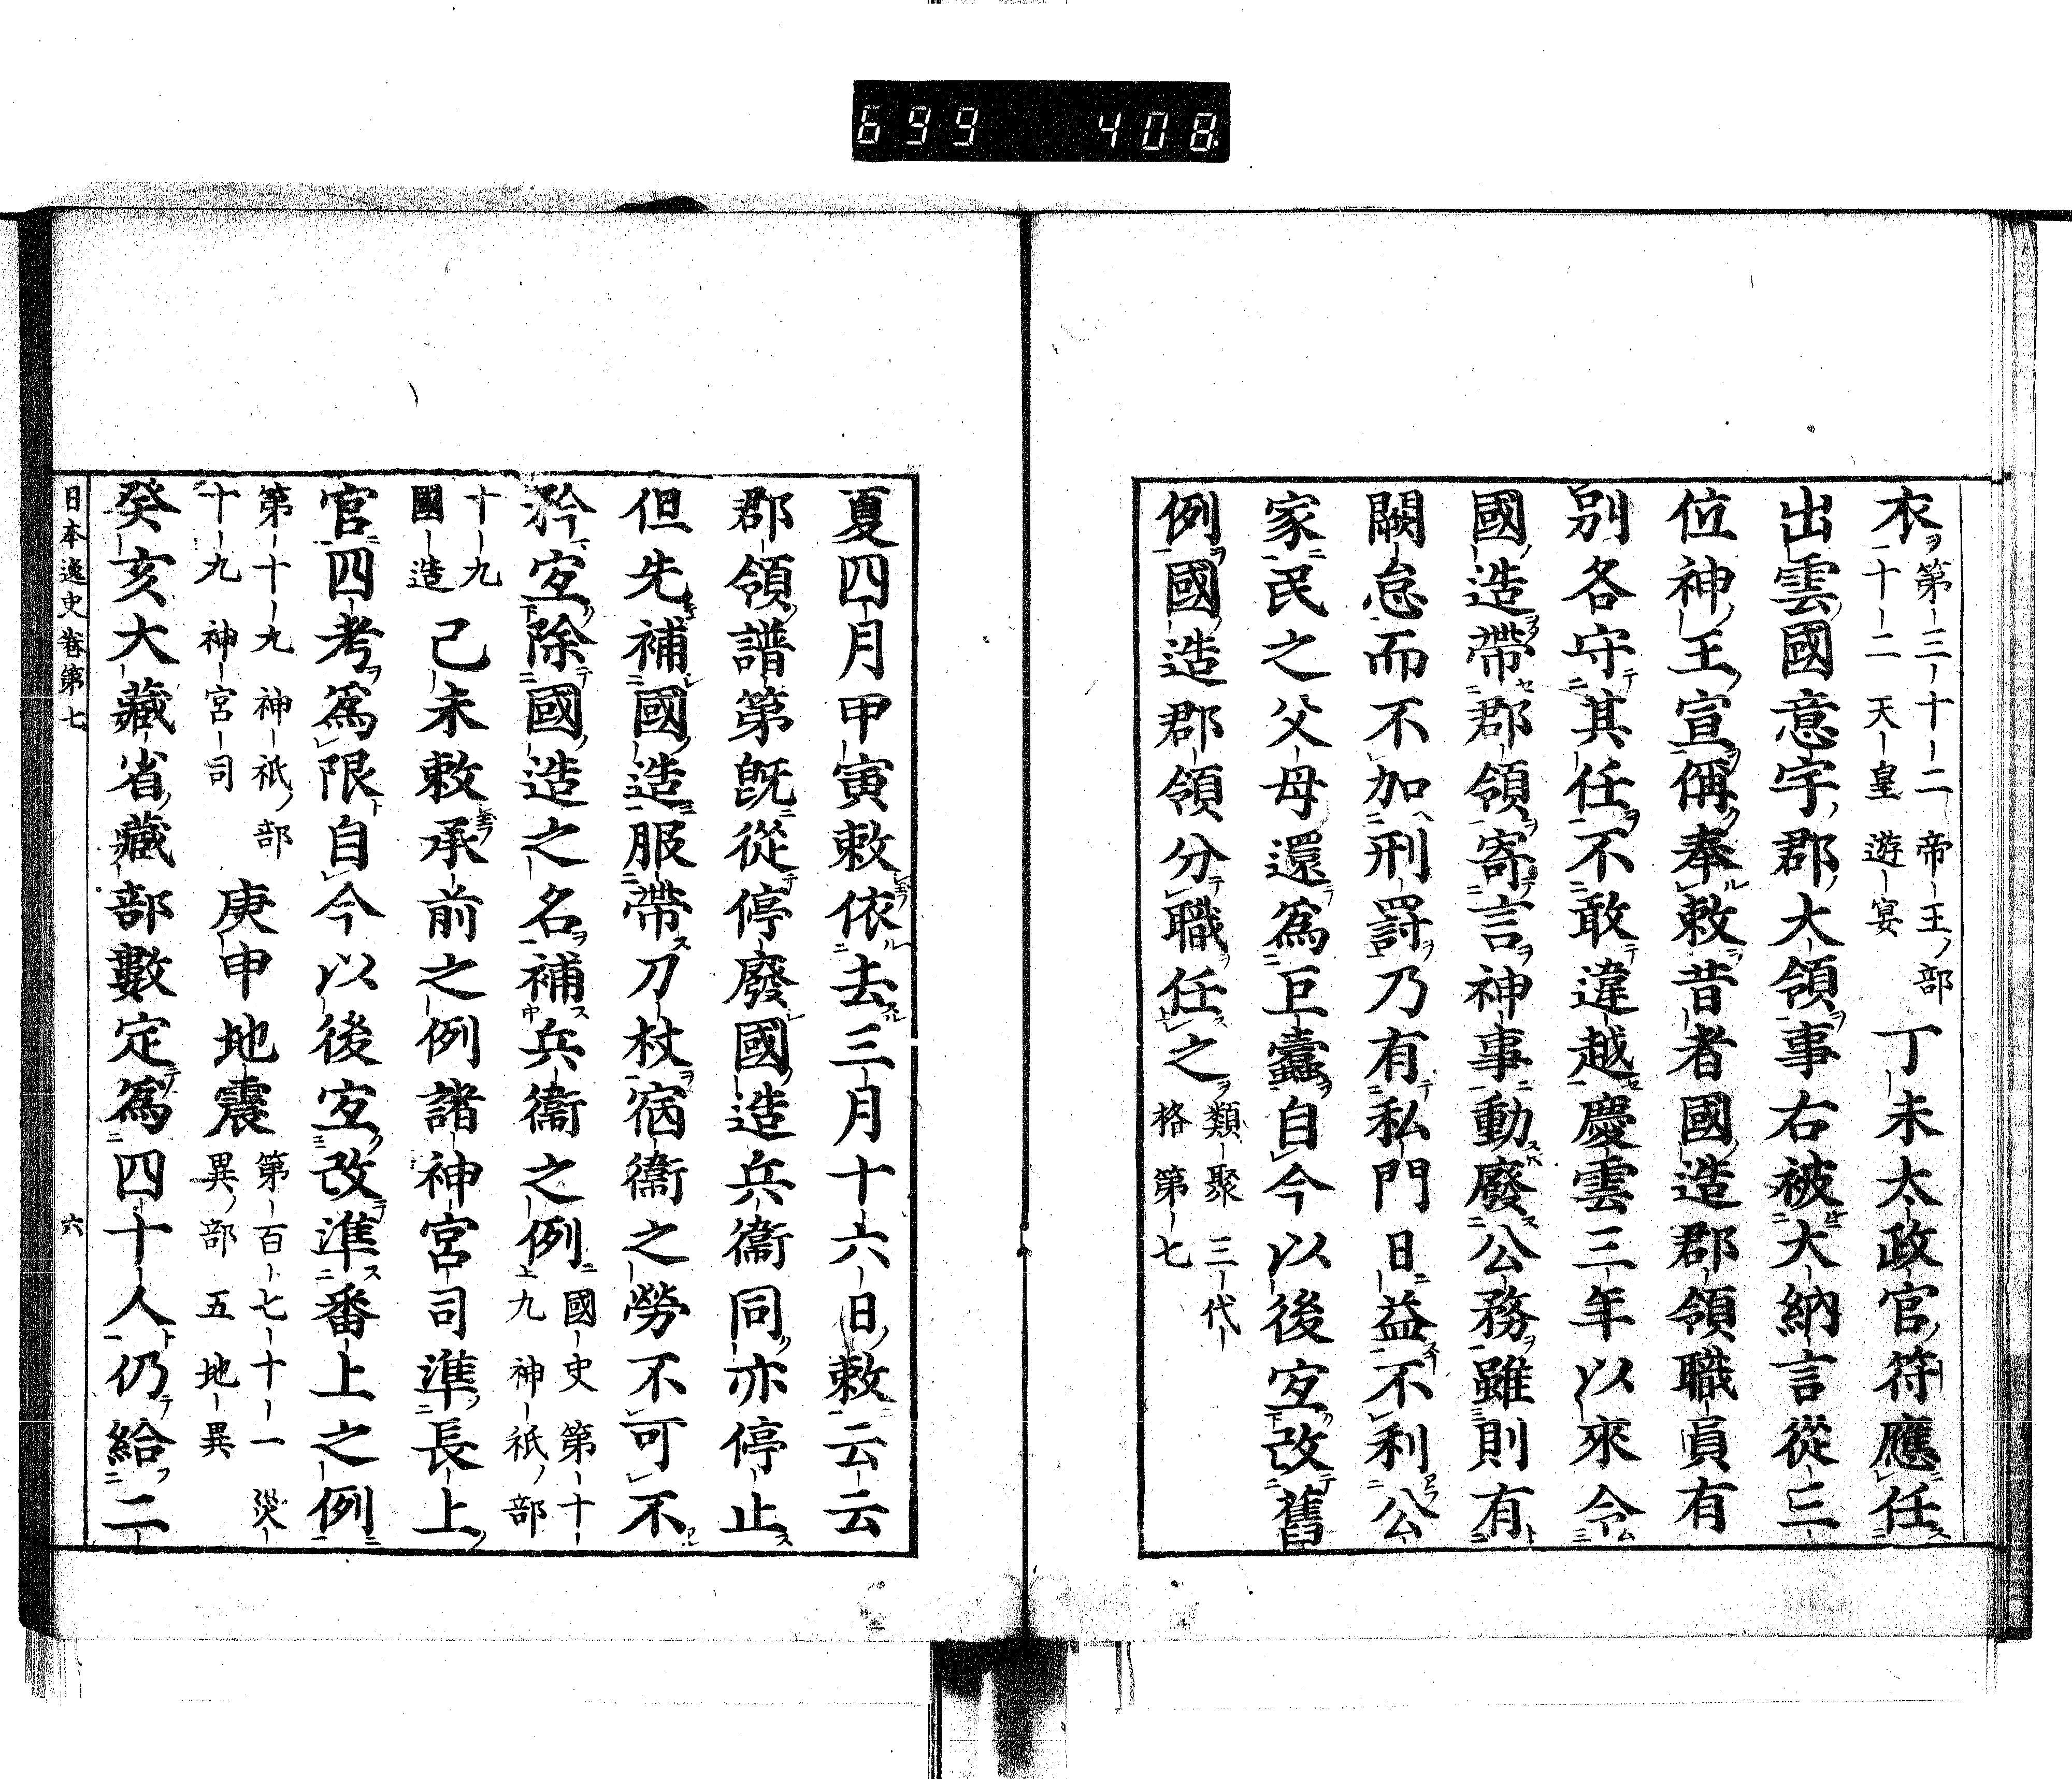 699 408
衣第三十二帝王部二十二天皇遊宴丁未太政官符應任
出雲國意宇郡大領事右被大納言從三
位神王宣偁奉敕昔者國造郡領職員有
別各守其任不敢違越慶雲三年以來令
國造帶郡領寄言神事動廢公務雖則有
闕怠而不加刑罰乃有私門日益不利公
家民之父母還爲巨蠹自今以後宐改舊
例國造郡領分職任之類聚三代格第七
夏四月甲寅敕依去三月十六日敕云云
郡領譜第既從停廢國造兵衞同亦停止
但先補國造服帶刀杖宿衞之勞不可不
矜宐除國造之名補兵衞之例國史第十九神祇部
十九國造己未敕承前之例諸神宮司準長上
官四考爲限自今以後宐改準番上之例
第十九神祇部十九神宮司庚申地震第百七十一災異部五地異
癸亥大藏省藏部數定爲四十人仍給二
日本逸史卷第七 六